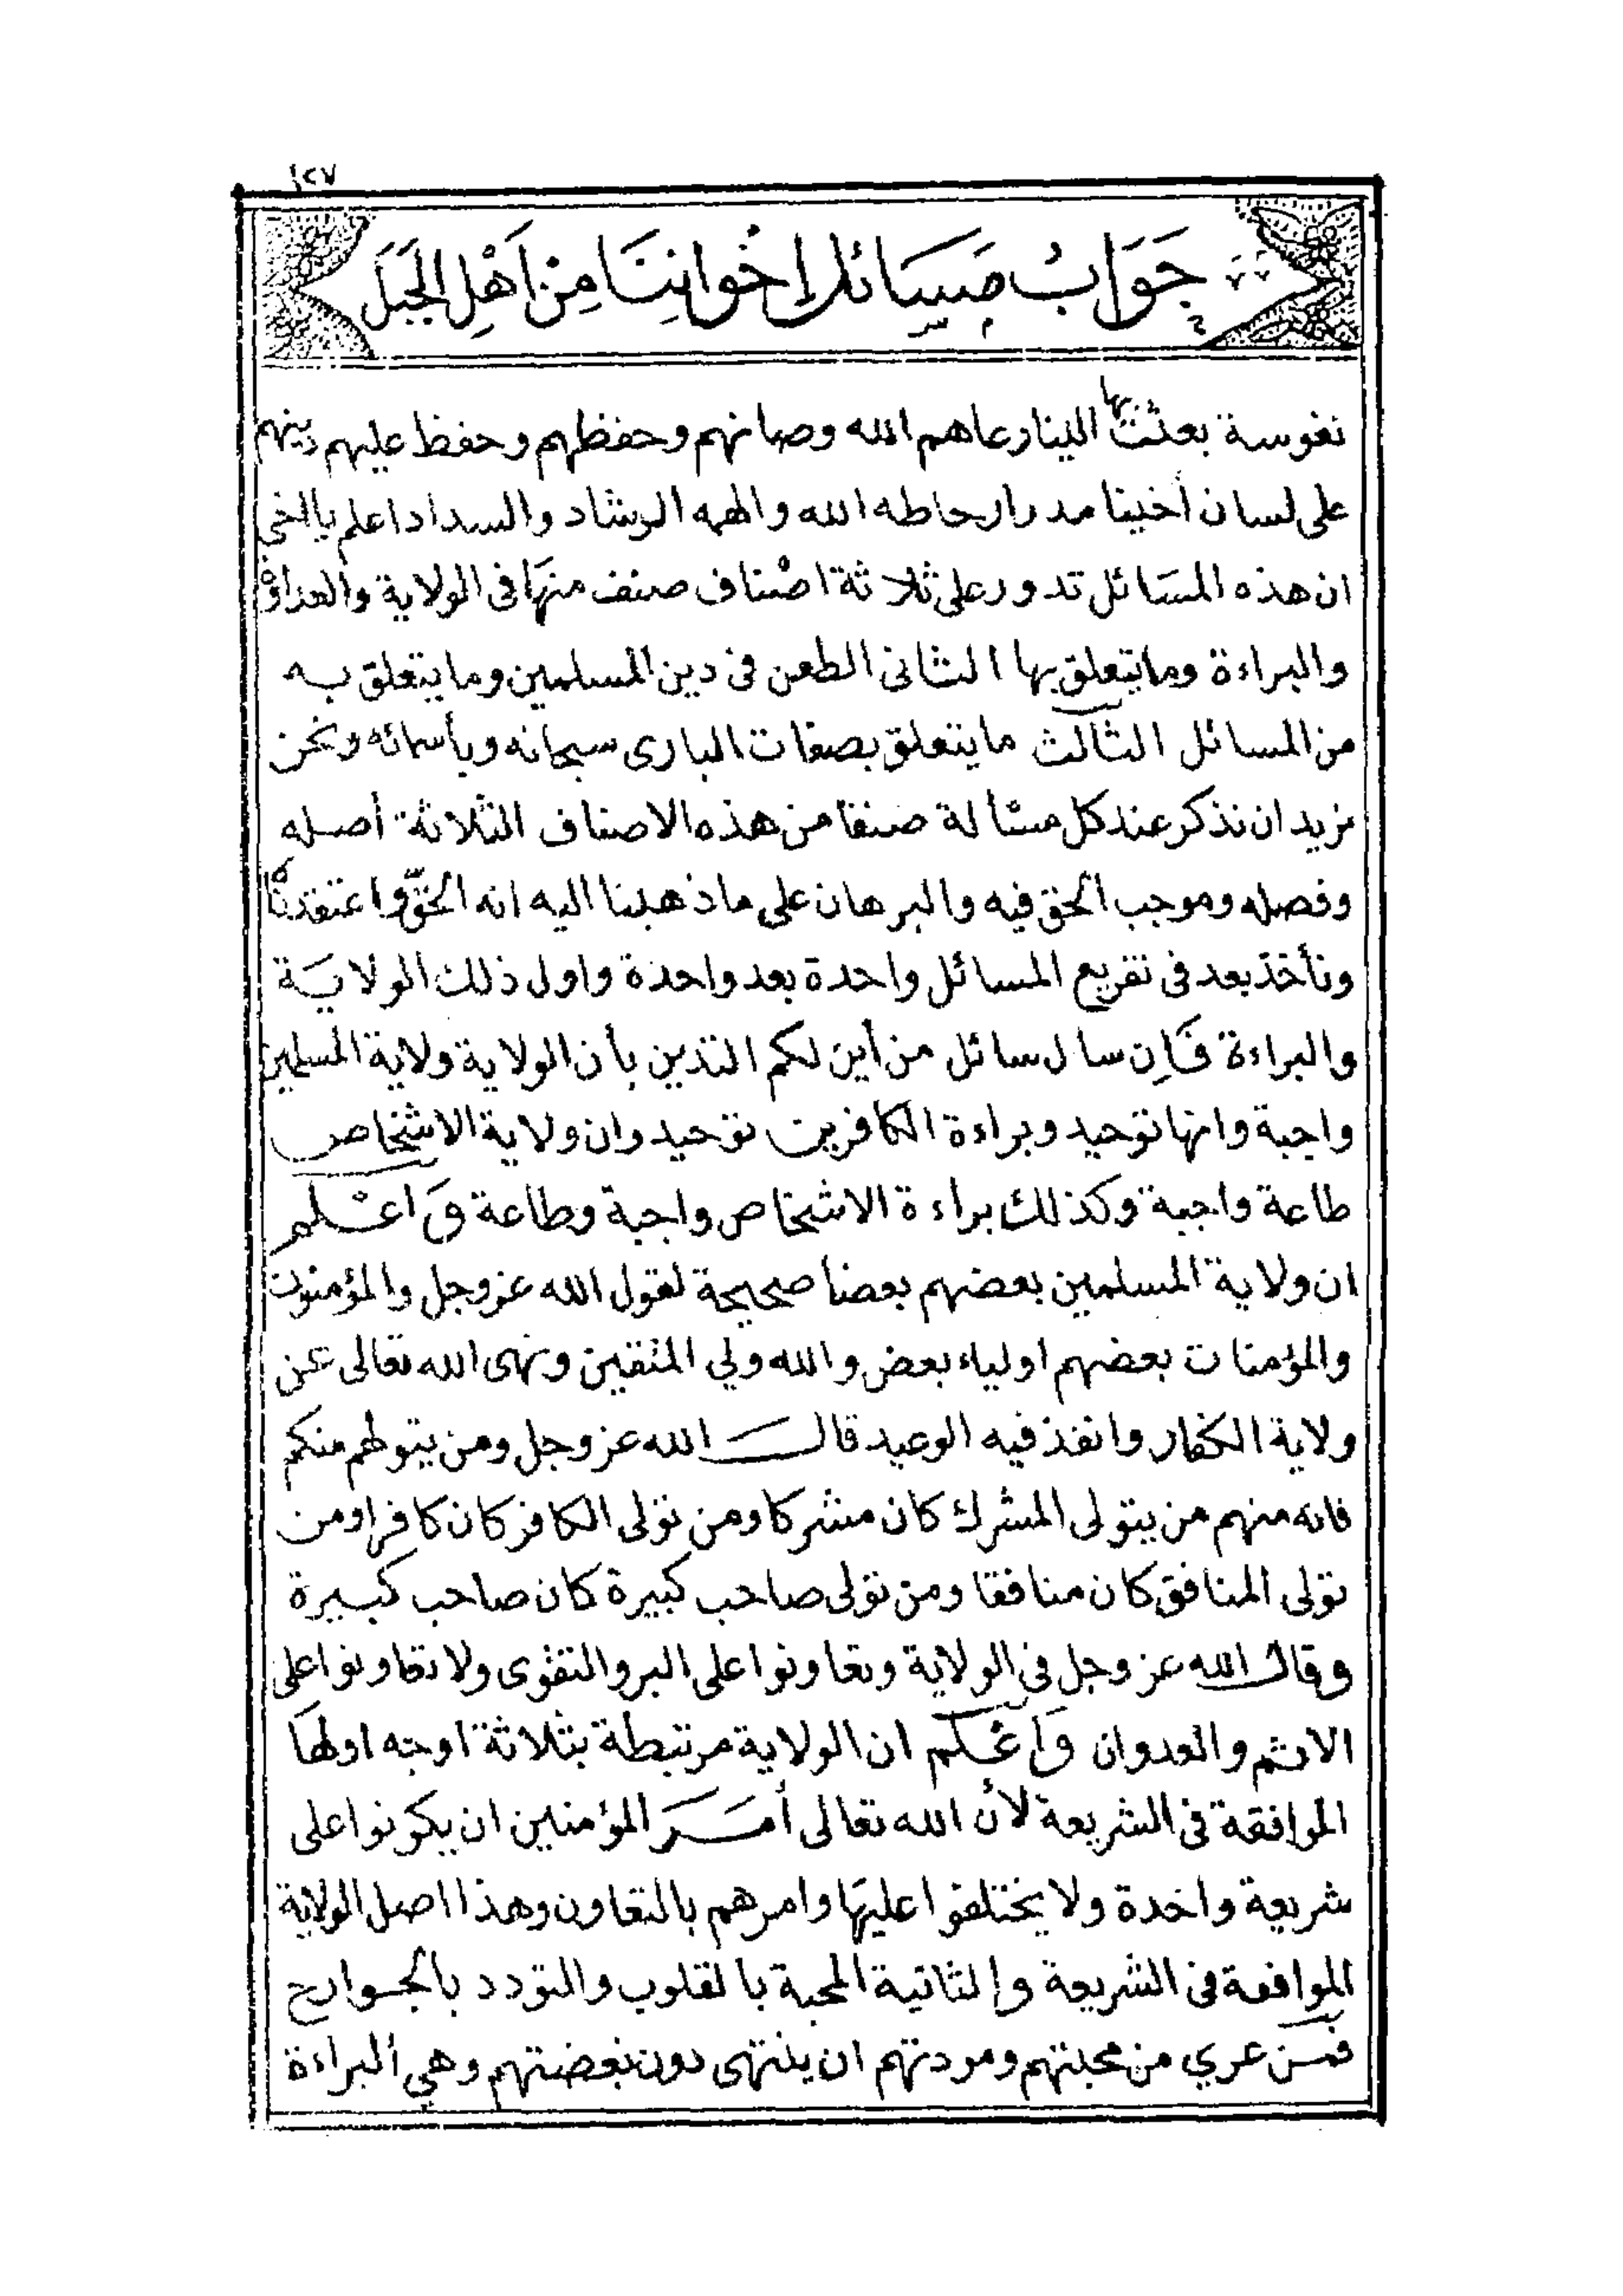 ١٢٧
جَوَابُ مَسَائل اخْوانِنَا مِنْ اَهْلِ الجَبَل
نفوسة بعثت بها الينا رعاهم الله وصانهم وحفظهم وحفظ عليهم دينهم
على لسان أخينا مدرار حاطه الله والهمه الرشاد والسداد اعلم يا اخى
ان هذه المسَائل تدور على ثلاثة اصْناف صنف منهَا فى الولاية والعداوة
والبراءة وما يتعلق بها الثانى الطعن فى دين المسلمين وما يتعلق به
من المسائل الثالث ما يتعلق بصفات البارى سبحانه وبأسمائه ونحن
نريد ان نذكر عند كل مسْألة صنفا من هذه الاصناف الثلاثة أصله
وفصله وموجب الحق فيه والبرهان على ما ذهبنا اليه انه الحقّ واعتقدناه
ونأخذ بعد فى تفريع المسائل واحدة بعد واحدة واول ذلك الولايَة
والبراءة فَاِن سال سائل من أين لكم التدين بأن الولاية ولاية المسلمين
واجبة وانها توحيد وبراءة الكافرين توحيد وان ولاية الاشخاص
طاعة واجبة وكذلك براءة الاشخاص واجبة وطاعة وَاعْلم
ان ولاية المسلمين بعضهم بعضا صحيحة لقول الله عز وجل والمؤمنون
والمؤمنات بعضهم اولياء بعض والله ولي المتقين ونهى الله تعالى عن
ولاية الكفار وانفذ فيه الوعيد قالَ الله عز وجل ومن يتولهم منكم
فانه منهم من يتولى المشرك كان مشركا ومن تولى الكافر كان كافرا ومن
تولى المنافق كان منافقا ومن تولى صاحب كبيرة كان صاحب كبيرة
وقال الله عز وجل فى الولاية وتعاونوا على البر والتقوى ولا تعاونوا على
الاثم والعدوان وَاعْلم ان الولاية مرتبطة بثلاثة اوجه اولهَا
الموافقة فى الشريعة لأن الله تعالى أمَرَ المؤمنين ان يكونوا على
شريعة واحدة ولا يختلفوا عليهَا وامرهم بالتعاون وهذا اصل الولاية
الموافقة فى الشريعة والثانية المحبة بالقلوب والتودد بالجوارح
فمَن عري من محبتهم ومودتهم ان ينتهى دون بغضتهم وهي البراءة